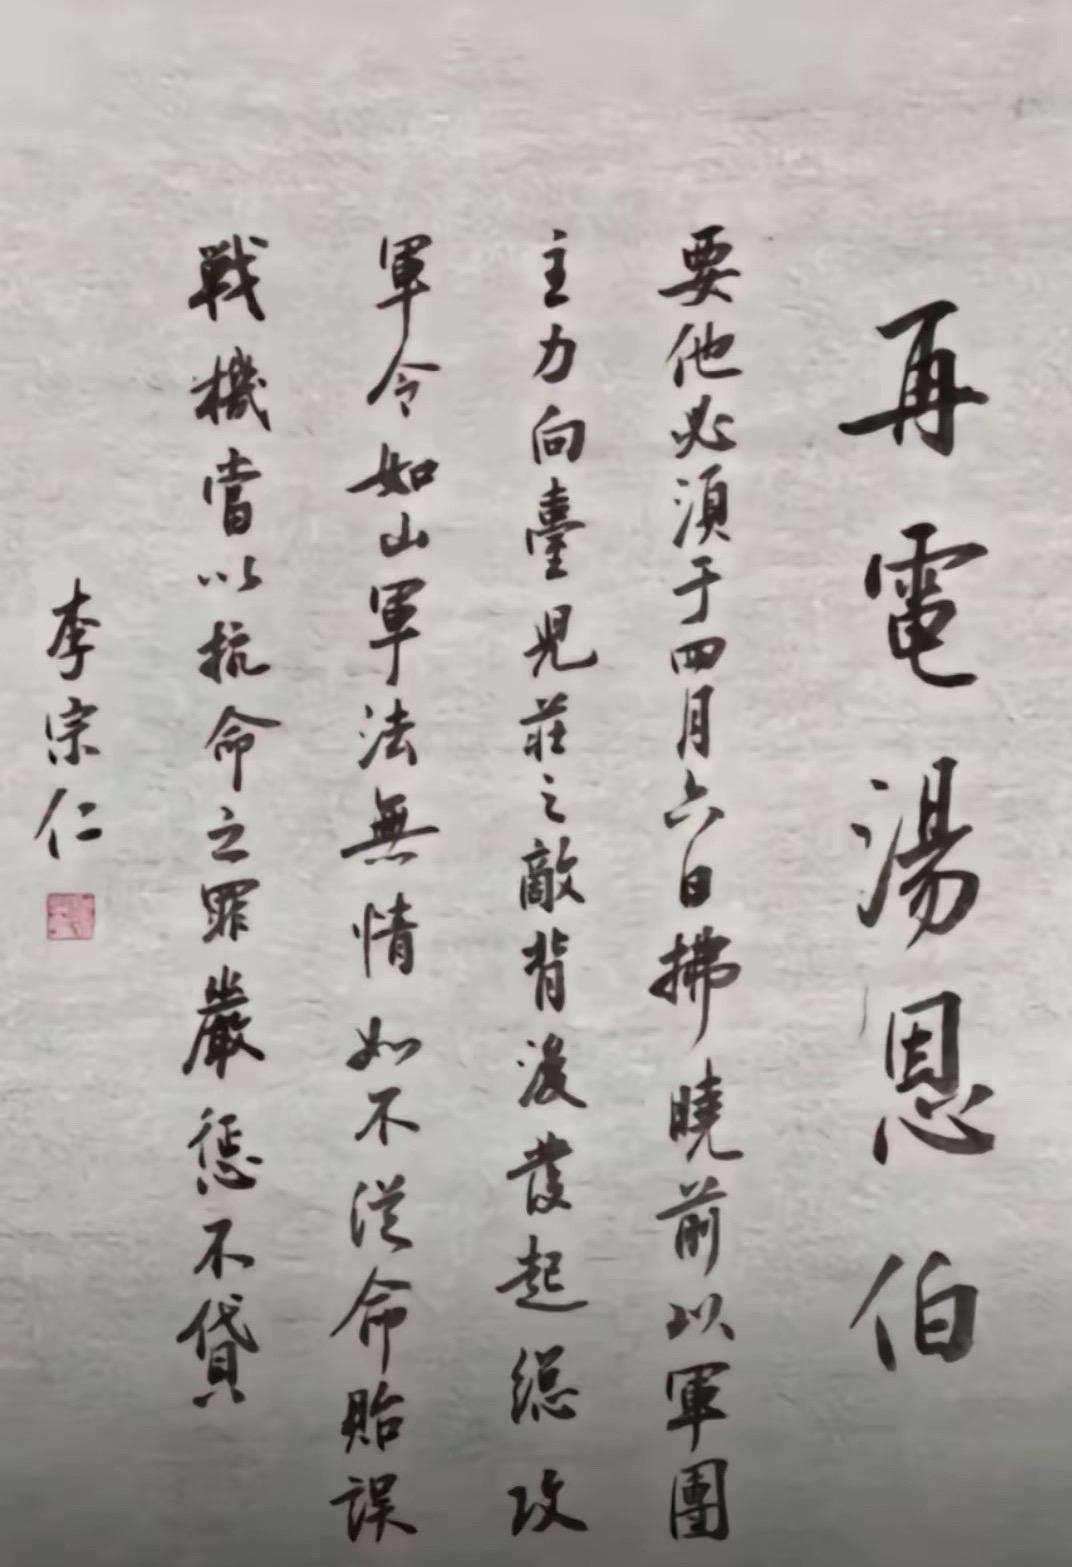 再電湯恩伯
要他必須于四月六日拂曉前以軍團
主力向臺兒莊之敵背後發起總攻
軍令如山軍法無情如不從命貽誤
戰機當以抗命之罪嚴懲不貸
李宗仁